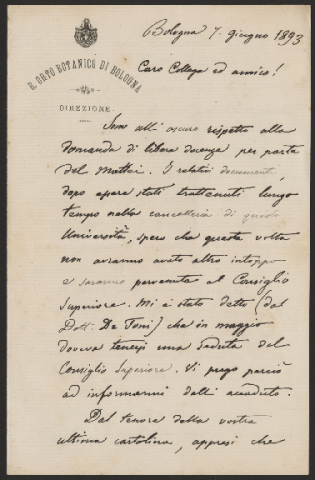 R. ORTO BOTANICO DI BOLOGNA
DIREZIONE
Bologna 7. giugno 1893
Caro Collega ed amico!
Sono all' oscuro rispetto alla
domanda di libera docenza per parte
del Mattei. I relativi documenti,
dopo essere stati trattenuti lungo
tempo nella cancelleria di questa
Università, spero che questa volta
non avranno avuto altro intoppo
e saranno pervenuti al Consiglio
Superiore. Mi è stato detto (dal
Dott. De Toni) che in maggio
doveva tenersi una seduta del
Consiglio Superiore. Vi prego perciò
ad informarmi dell' accaduto.
Dal tenore della vostra
ultima cartolina, appresi che